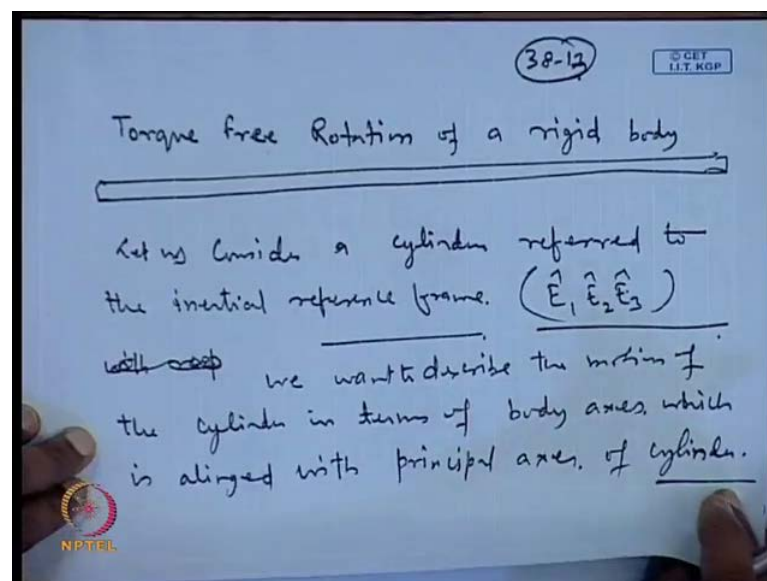 38-12
© CET
I.I.T. KGP
Torque free Rotation of a rigid body
Let us Consider a cylinder referred to
the inertial reference frame. (Ê₁ Ê₂ Ê₃)
we want to describe the motion of
the cylinder in terms of body axes, which
is alinged with principal axes. of cylinder.
NPTEL